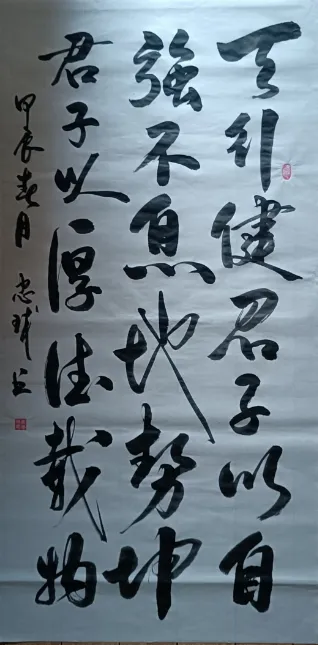 天行健君子以自
強不息地勢坤
君子以厚德載物
甲辰春月